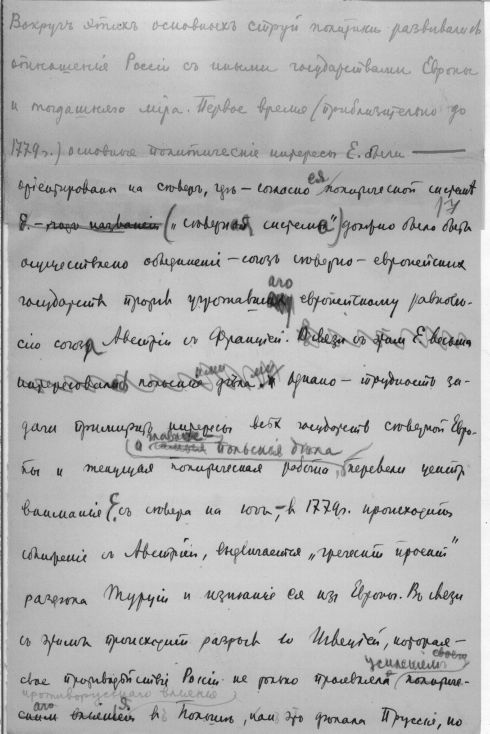 Вокругъ этихъ основныхъ струй политики развивались
отношенія Россіи съ иными государствами Европы
и тогдашняго міра. Первое время (приблизительно до
1779г.) основные политическіе интересы Е. были —
оріентированы на сѣверъ, гдѣ – согласно ея политической системѣ
("сѣверная система") должно было быть
осуществлено объединеніе – союзъ сѣверно – европейскихъ
государствъ противъ угрожавшаго европейскому равновѣ-
сію союза Австріи съ Франціей. Въ связи съ этимъ Е весьма
интересовалась польскими дѣла однако – трудность за-
дачи примирить интересы всѣхъ государствъ сѣверной Евро-
а главное – польскія дѣла
пы и текущая политическая работа, перевели центръ
вниманія Е. съ сѣвера на югъ, – въ 1779г. происходитъ
сближеніе съ Австріей, выдвигается „греческій проектъ"
раздѣла Турціи и изгнаніе ея изъ Европы. Въ связи
съ этимъ происходитъ разрывъ со Швеціей, которая –
усиленіемъ своего
свое противодѣйствіе Россіи не только проявляла политиче-
противорусскаго вліянія
скимъ вліяніемъ въ Польшѣ, какъ это дѣлала Пруссія, но